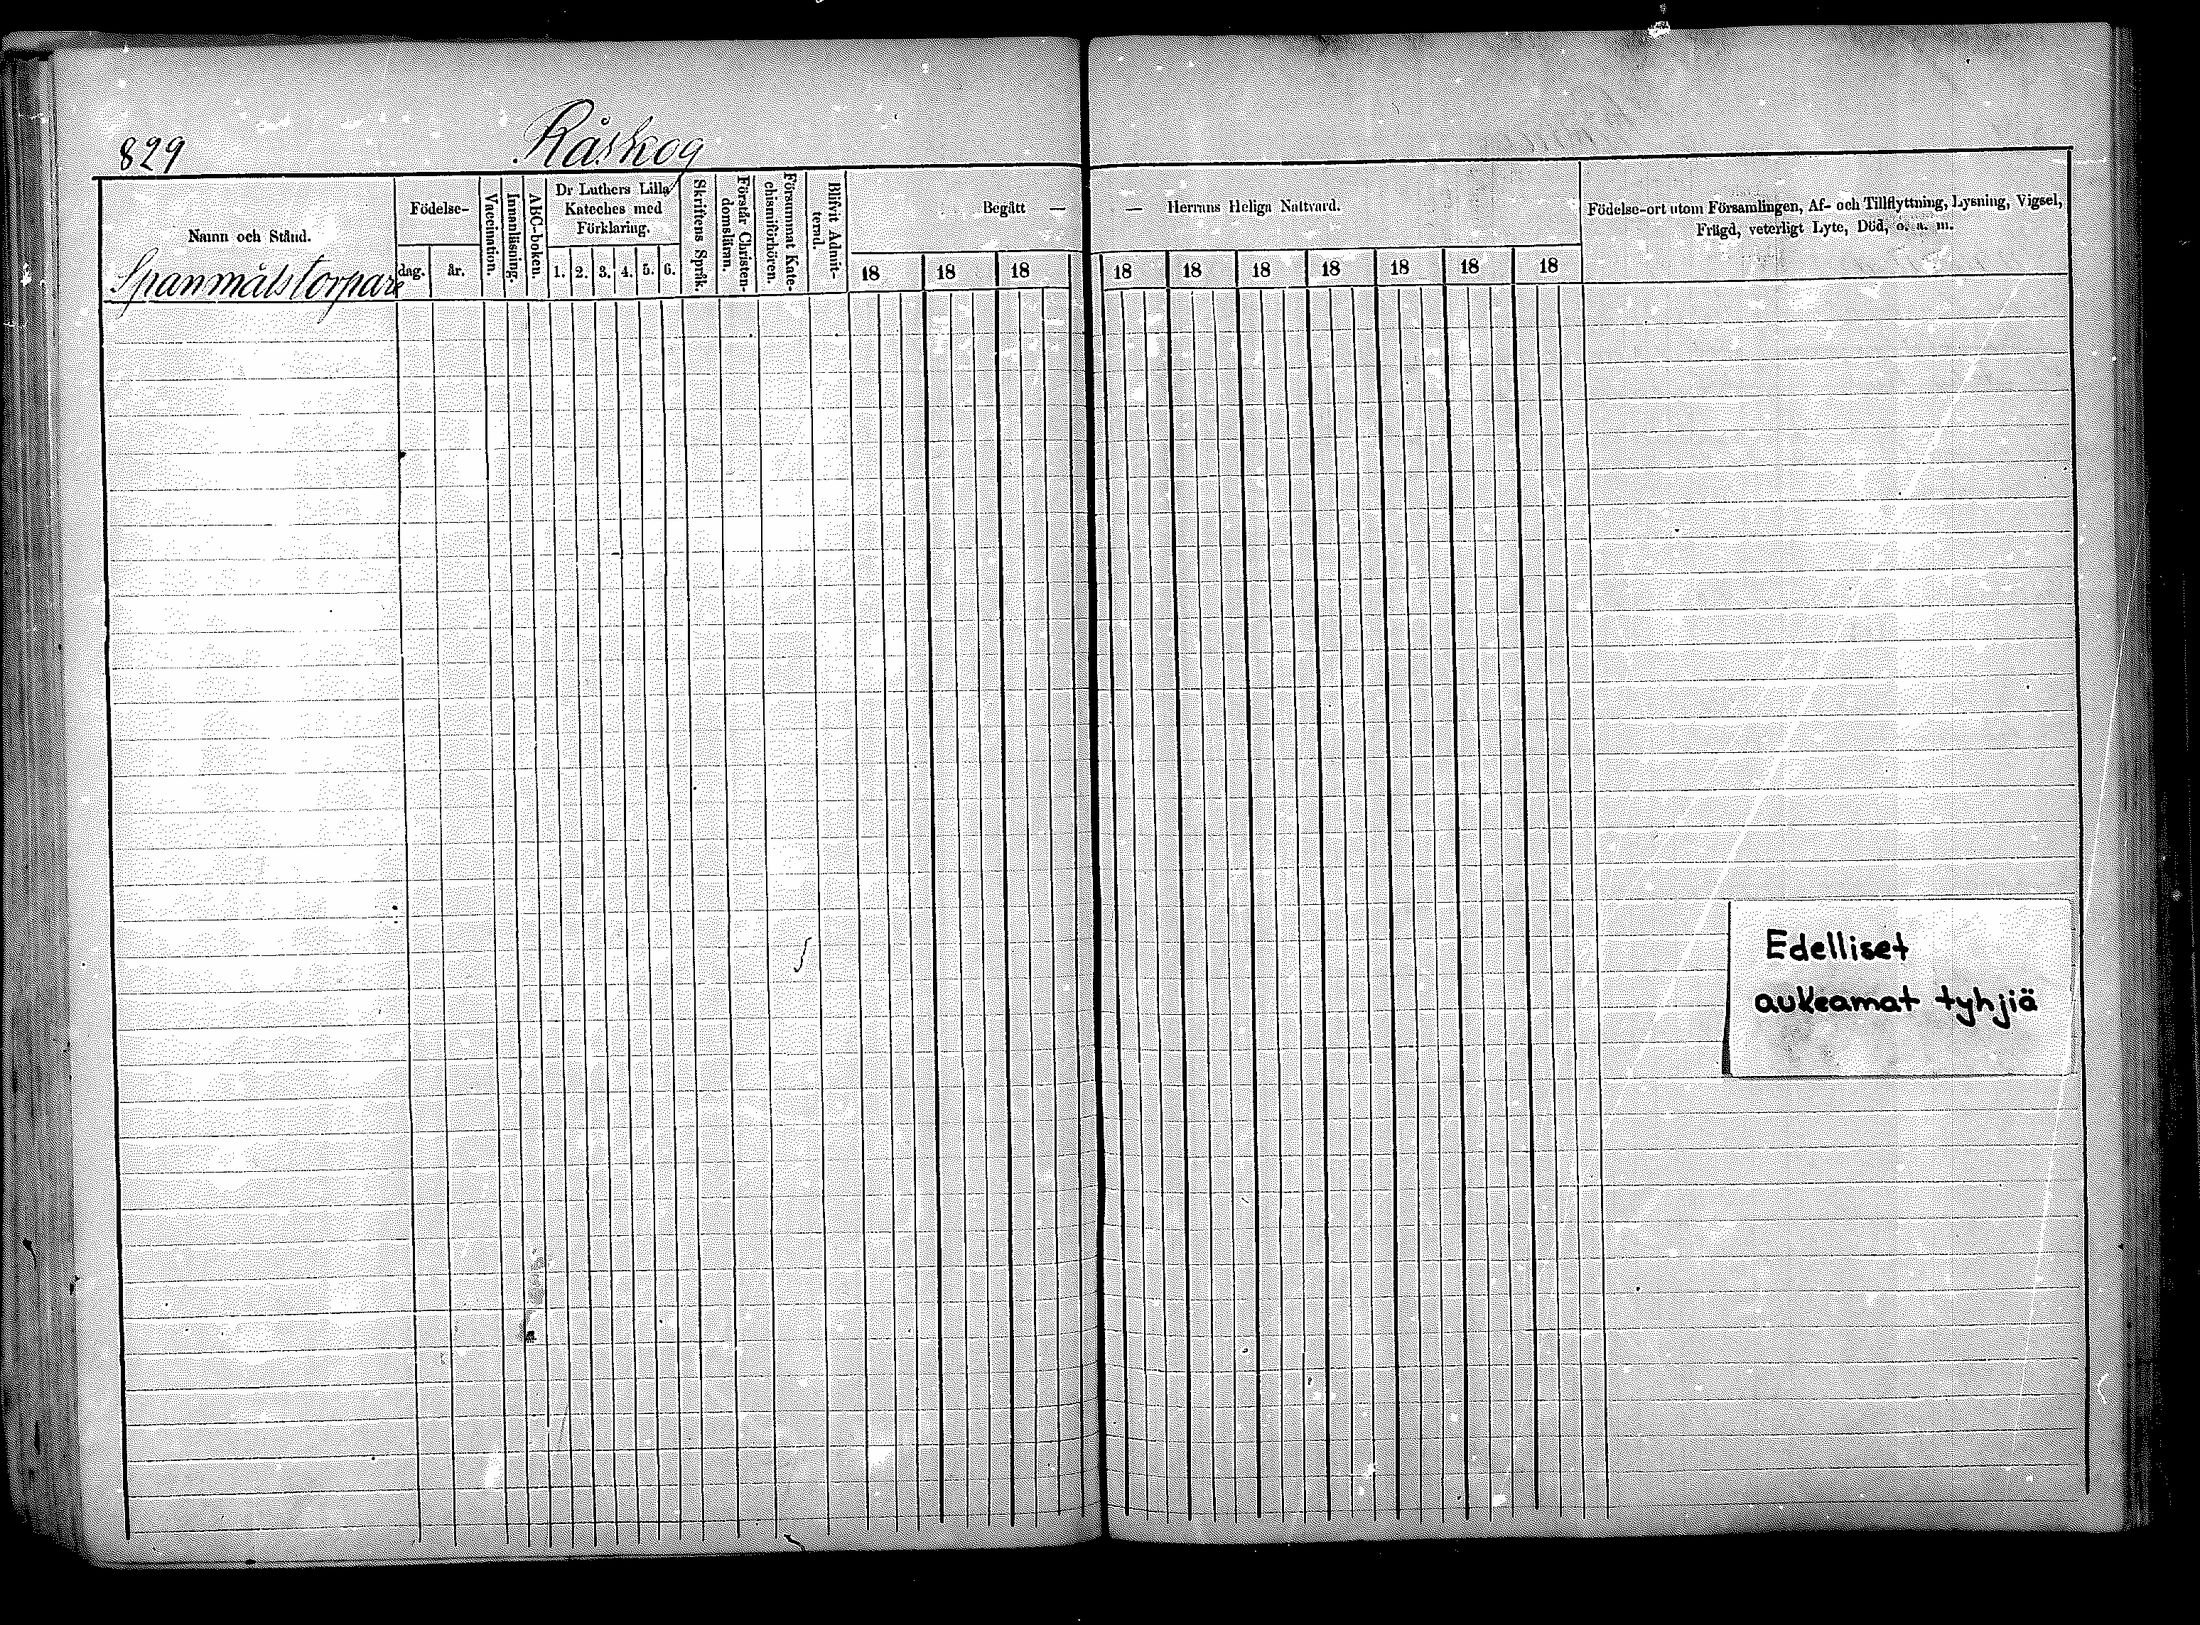 829
Råskog
Namn och Stånd.
Spanmålstorpare
Födelse-
dag.
år.
Vaccination.
Innanläsning.
ABC-boken.
Dr Luthers Lilla
Kateches med
Förklaring.
1. 2. 3. 4. 5. 6.
Skriftens Språk.
Förstår Christen-
domsläran.
Försummat Kate-
chismiförhören.
Blifvit Admit-
terad.
Begått —
18 18 18
— Herrans Heliga Nattvard.
18 18 18 18 18 18 18
Födelse-ort utom Församlingen, Af- och Tillflyttning, Lysning, Vigsel,
Frägd, veterligt Lyte, Död, o. a. m.
Edelliset
aukeamat tyhjiä